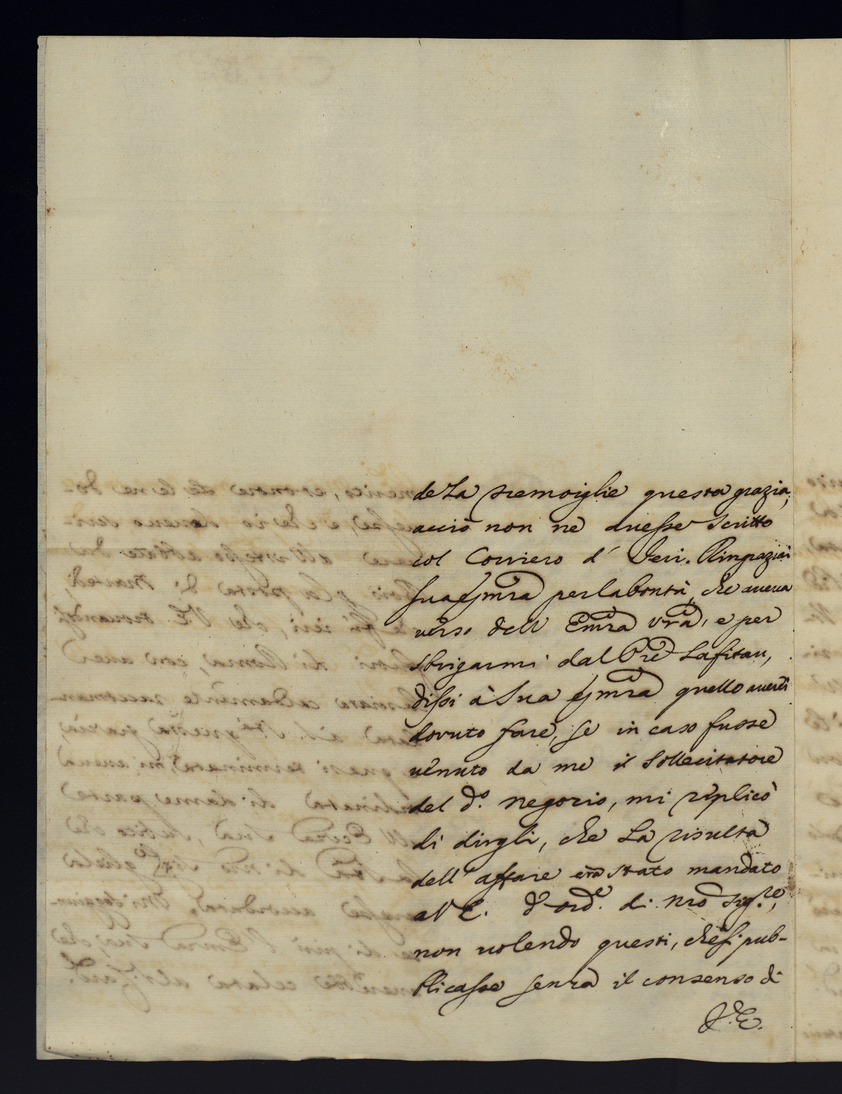 de la Tremoiglie questa grazia,
acciò non ne avesse scritto
col Corriero d' Ieri. Ringraziai
sua Em̃za per la bontà, che aveva
verso dell' Em̃za Vrã, e per
sbrigarmi dal Prẽ Lafitau,
dissi à sua Em̃za quello averei
dovuto fare, se in caso fusse
venuto da me il sollecitatore
del d.º negozio, mi replicò
di dirgli, che la risulta
dell' affare era stato mandato
all' E. d' ord.e di nrõ Sig.re,
non volendo questi, che si pub-
blicasse senza il consenso di
V. E.